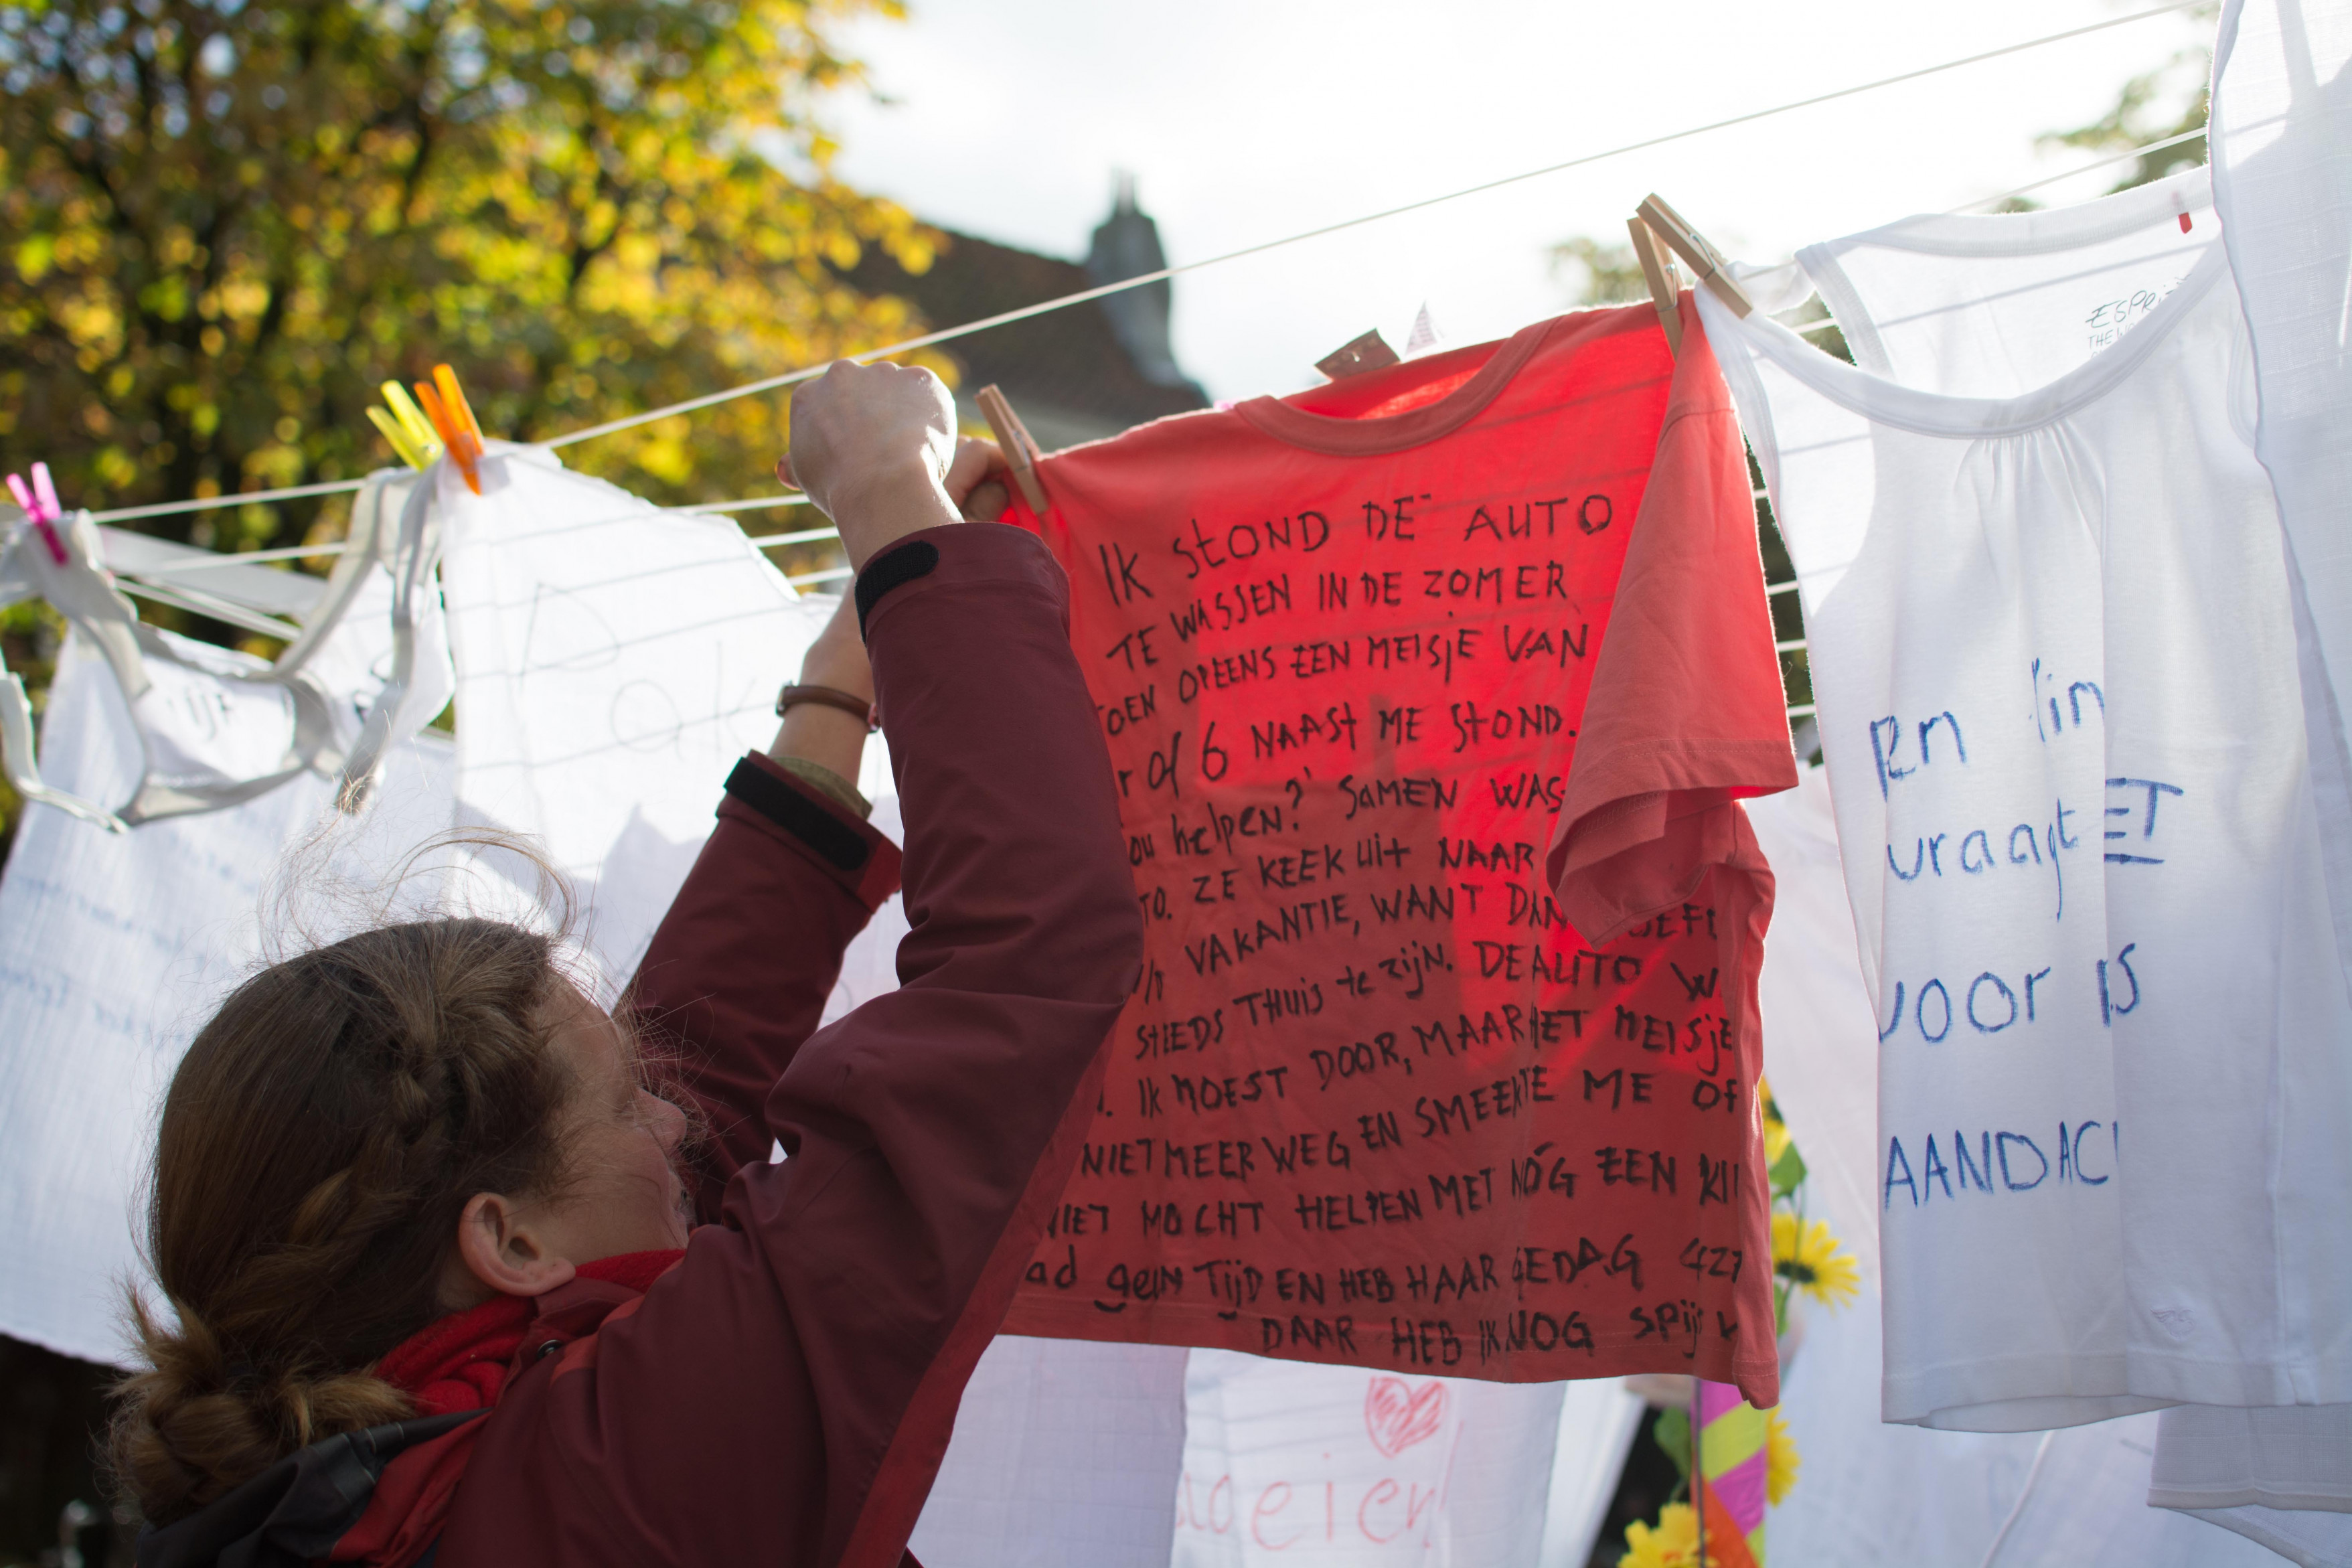 IK STOND DE AUTO
TE WASSEN IN DE ZOMER
OEN OPEENS EEN MEISJE VAN
r of 6 NAAST ME STOND.
ou helpen?' SAMEN WAS
TO. ZE KEEK uit NAAR
VAKANTIE, WANT DAN
STEEDS THUIS te zijn. DE AUTO W
. IK MOEST DOOR, MAAR HET MEISJE
NIET MEER WEG EN SMEEKTE ME OF
NIET MOCHT HELPEN MET NÓG EEN KI
ad geen TIJD EN HEB HAAR GEDAG
DAAR HEB IK NOG SPIJT
ESPRIT
THE
Een
vraagt ET
voor IS
AANDAC
Dak
oeier!